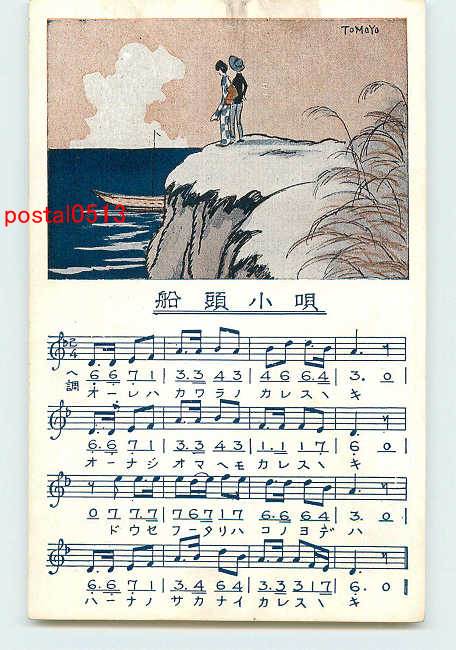 TOMOYO
postal0513
船頭小唄
2/4
ヘ調
6. 6 7 1 | 3. 3 4 3 | 4 6 6. 4 | 3. 0
オーレハ カワラノ カレスヽキ
6. 6 7 1 | 3. 3 4 3 | 1. 1 1 7 | 6 0
オーナジ オマヘモ カレスヽキ
0 7 7. 7 | 7 6 7 1 7 | 6. 6 6 4 | 3. 0
ドウセ フータリハ コノヨデハ
6. 6 7 1 | 3. 4 6 4 | 3. 3 3 1 7 | 6. 0
ハーナノ サカナイ カレスヽキ